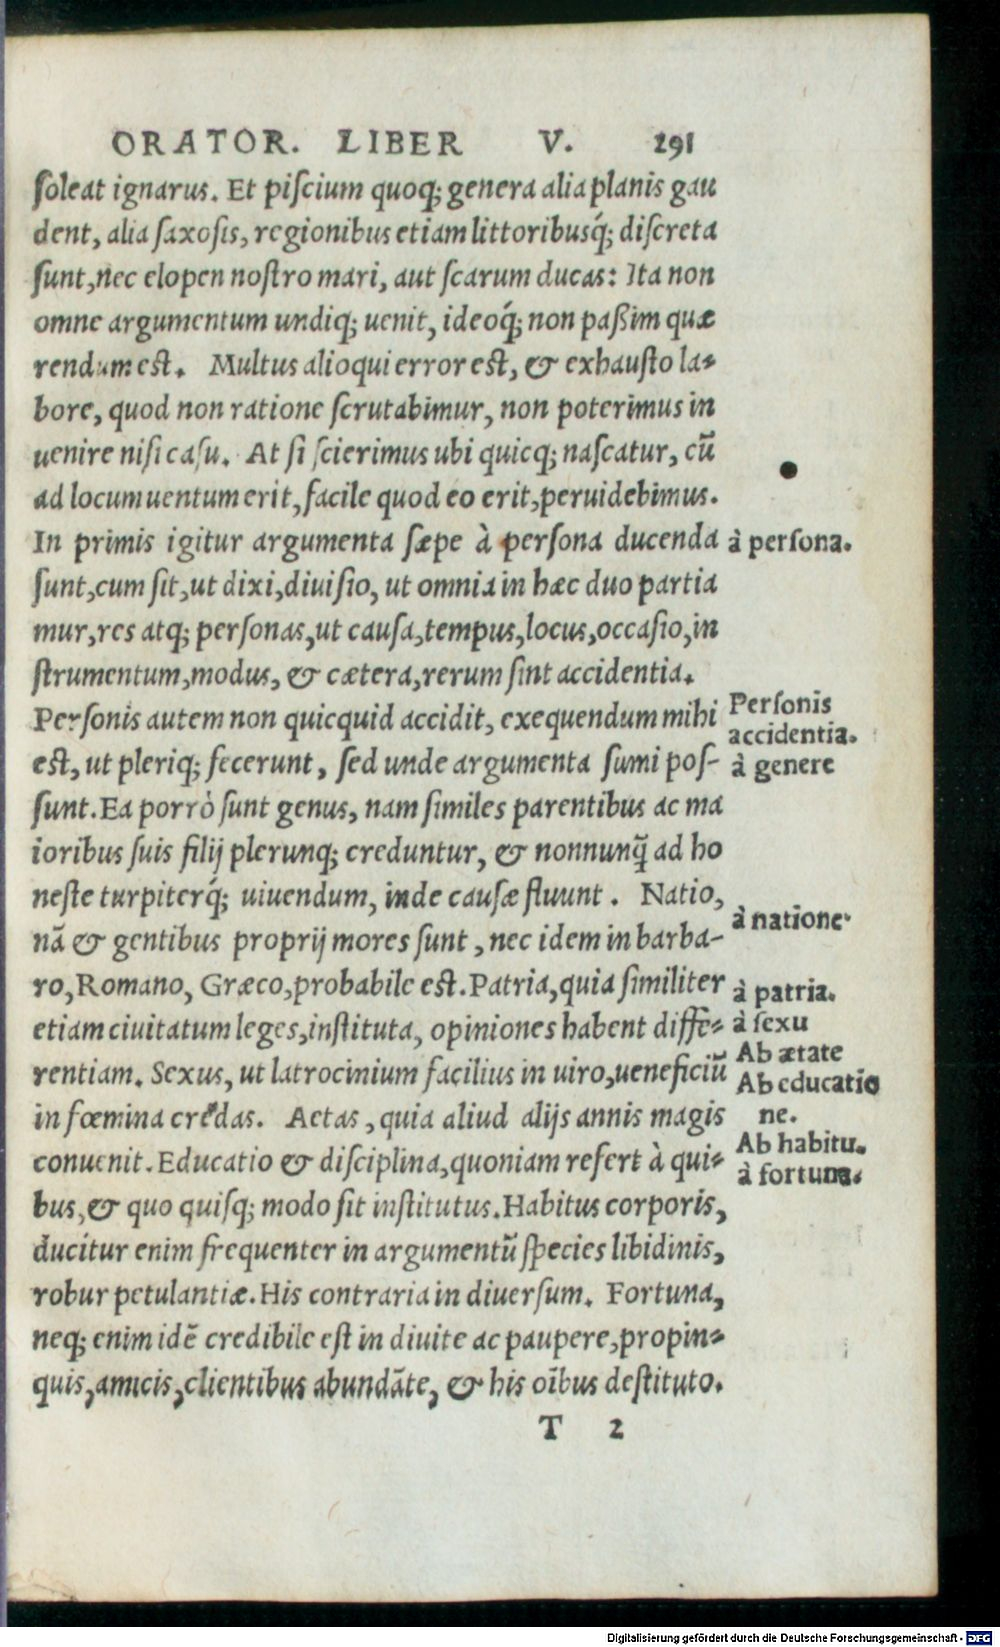 ORATOR. LIBER V. 291
soleat ignarus. Et piscium quoq; genera alia planis gau
dent, alia saxosis, regionibus etiam littoribusq́; discreta
sunt, nec elopen nostro mari, aut scarum ducas: Ita non
omne argumentum undiq; uenit, ideoq́; non paßim quæ
rendum est. Multus alioqui error est, & exhausto la-
bore, quod non ratione scrutabimur, non poterimus in
uenire nisi casu. At si scierimus ubi quicq; nascatur, cū
ad locum uentum erit, facile quod eo erit, peruidebimus.
In primis igitur argumenta sæpe à persona ducenda
à persona.
sunt, cum sit, ut dixi, diuisio, ut omnia in hæc duo partia
mur, res atq; personas, ut causa, tempus, locus, occasio, in
strumentum, modus, & cætera, rerum sint accidentia.
Personis autem non quicquid accidit, exequendum mihi
Personis
accidentia.
est, ut pleriq; fecerunt, sed unde argumenta sumi pos-
à genere
sunt. Ea porrò sunt genus, nam similes parentibus ac ma
ioribus suis filij plerunq; creduntur, & nonnunq̃ ad ho
neste turpiterq́; uiuendum, inde causæ fluunt. Natio,
à natione.
nā & gentibus proprij mores sunt, nec idem in barba-
ro, Romano, Græco, probabile est. Patria, quia similiter
à patria.
etiam ciuitatum leges, instituta, opiniones habent diffe-
à sexu
rentiam. Sexus, ut latrocinium facilius in uiro, ueneficiū
Ab ætate
Ab educatio
in fœmina credas. Aetas, quia aliud alijs annis magis
ne.
conuenit. Educatio & disciplina, quoniam refert à qui-
Ab habitu.
à fortuna.
bus, & quo quisq; modo sit institutus. Habitus corporis,
ducitur enim frequenter in argumentū species libidinis,
robur petulantiæ. His contraria in diuersum. Fortuna,
neq; enim idē credibile est in diuite ac paupere, propin-
quis, amicis, clientibus abundāte, & his oībus destituto.
T 2
Digitalisierung gefördert durch die Deutsche Forschungsgemeinschaft - DFG